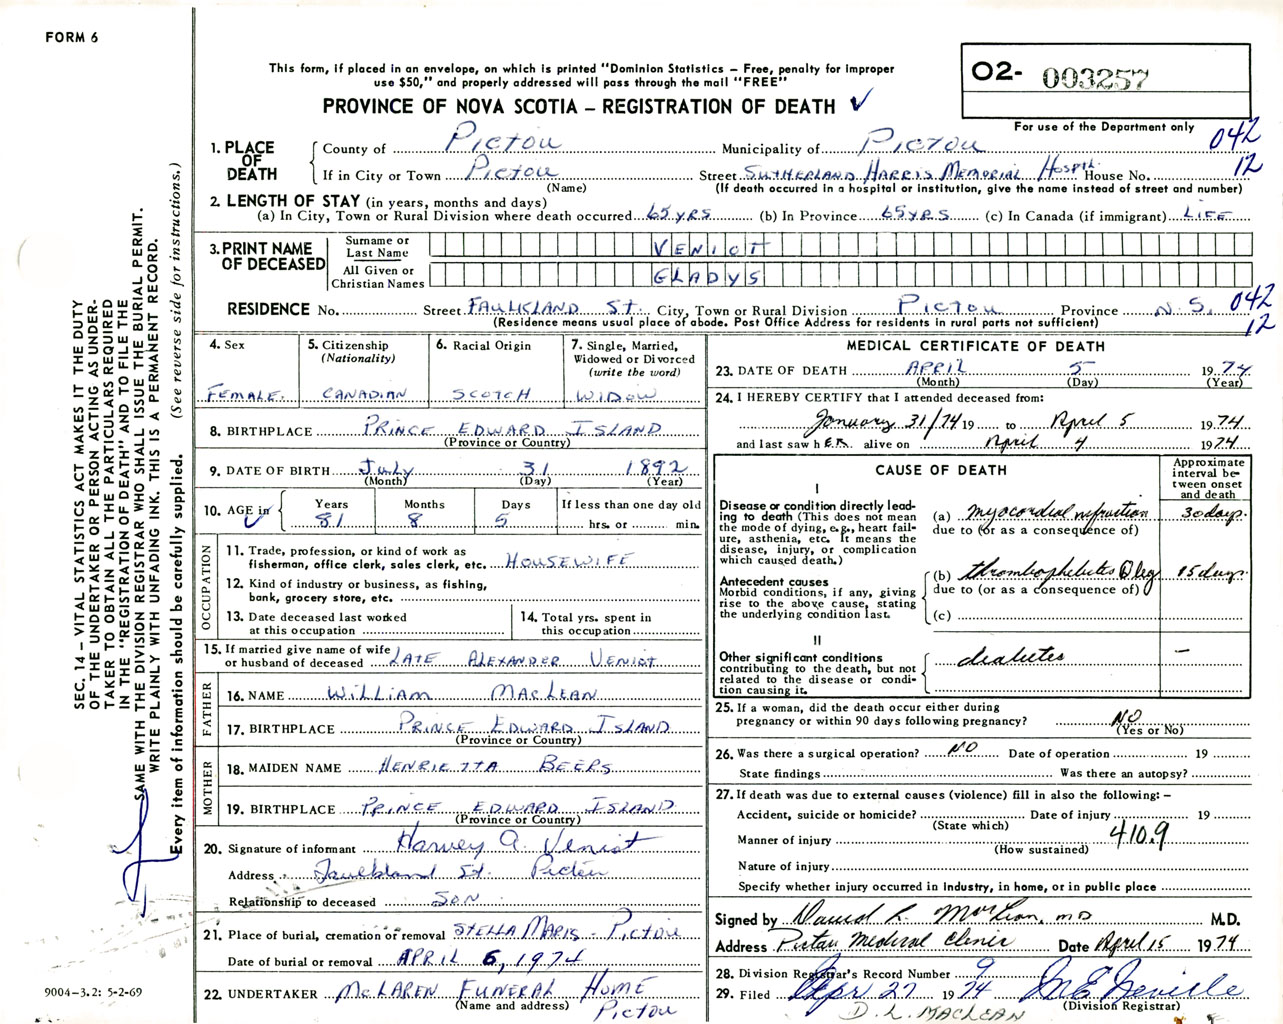 FORM 6
This form, if placed in an envelope, on which is printed "Dominion Statistics – Free, penalty for improper
use $50," and properly addressed will pass through the mail "FREE"
O2- 003257
PROVINCE OF NOVA SCOTIA – REGISTRATION OF DEATH ✓
For use of the Department only
1. PLACE OF DEATH
County of Pictou Municipality of Pictou 042
If in City or Town Pictou Street Sutherland Harris Memorial Hospit. House No. 12
(Name) (If death occurred in a hospital or institution, give the name instead of street and number)
2. LENGTH OF STAY (in years, months and days)
(a) In City, Town or Rural Division where death occurred 65 yrs (b) In Province 65 yrs (c) In Canada (if immigrant) Life
3. PRINT NAME OF DECEASED
Surname or Last Name VENIOT
All Given or Christian Names GLADYS
RESIDENCE No. Street Faulkland St. City, Town or Rural Division Pictou Province N.S. 042
(Residence means usual place of abode. Post Office Address for residents in rural parts not sufficient) 12
4. Sex Female.
5. Citizenship (Nationality) Canadian
6. Racial Origin Scotch
7. Single, Married, Widowed or Divorced (write the word) Widow
8. BIRTHPLACE Prince Edward Island
(Province or Country)
9. DATE OF BIRTH July 31 1892
(Month) (Day) (Year)
10. AGE in ✓ Years 81 Months 8 Days 5 If less than one day old hrs. or min.
OCCUPATION
11. Trade, profession, or kind of work as
fisherman, office clerk, sales clerk, etc. Housewife
12. Kind of industry or business, as fishing,
bank, grocery store, etc.
13. Date deceased last worked
at this occupation
14. Total yrs. spent in
this occupation
15. If married give name of wife
or husband of deceased Late Alexander Veniot
FATHER
16. NAME William MacLean
17. BIRTHPLACE Prince Edward Island
(Province or Country)
MOTHER
18. MAIDEN NAME Henrietta Beers
19. BIRTHPLACE Prince Edward Island
(Province or Country)
20. Signature of informant Harvey A. Veniot
Address Faulkland St. Pictou
Relationship to deceased Son
21. Place of burial, cremation or removal Stella Maris - Pictou
Date of burial or removal April 6, 1974
22. UNDERTAKER McLaren Funeral Home
(Name and address) Pictou
MEDICAL CERTIFICATE OF DEATH
23. DATE OF DEATH April 5 1974
(Month) (Day) (Year)
24. I HEREBY CERTIFY that I attended deceased from:
January 31/74 19 to April 5 1974
and last saw her alive on April 4 1974
CAUSE OF DEATH
Approximate interval between onset and death
I
Disease or condition directly leading
to death (This does not mean
the mode of dying, e.g., heart failure,
asthenia, etc. It means the
disease, injury, or complication
which caused death.)
(a) myocardial infarction 30 days.
due to (or as a consequence of)
Antecedent causes
Morbid conditions, if any, giving
rise to the above cause, stating
the underlying condition last.
(b) thrombophlebitis leg 15 days.
due to (or as a consequence of)
(c)
II
Other significant conditions
contributing to the death, but not
related to the disease or condition
causing it.
diabetes –
25. If a woman, did the death occur either during
pregnancy or within 90 days following pregnancy? NO
(Yes or No)
26. Was there a surgical operation? NO Date of operation 19
State findings Was there an autopsy?
27. If death was due to external causes (violence) fill in also the following: –
Accident, suicide or homicide? Date of injury 19
(State which)
Manner of injury 410.9
(How sustained)
Nature of injury
Specify whether injury occurred in industry, in home, or in public place
Signed by David L. McLean, MD M.D.
Address Pictou Medical Clinic Date April 15 1974
28. Division Registrar's Record Number 9
29. Filed Apr 27 1974 M E Neville
(Division Registrar)
D. L. MACLEAN
SEC. 14 – VITAL STATISTICS ACT MAKES IT THE DUTY
OF THE UNDERTAKER OR PERSON ACTING AS UNDER-
TAKER TO OBTAIN ALL THE PARTICULARS REQUIRED
IN THE "REGISTRATION OF DEATH" AND TO FILE THE
SAME WITH THE DIVISION REGISTRAR WHO SHALL ISSUE THE BURIAL PERMIT.
WRITE PLAINLY WITH UNFADING INK. THIS IS A PERMANENT RECORD.
Every item of information should be carefully supplied. (See reverse side for instructions.)
9004-3.2: 5-2-69